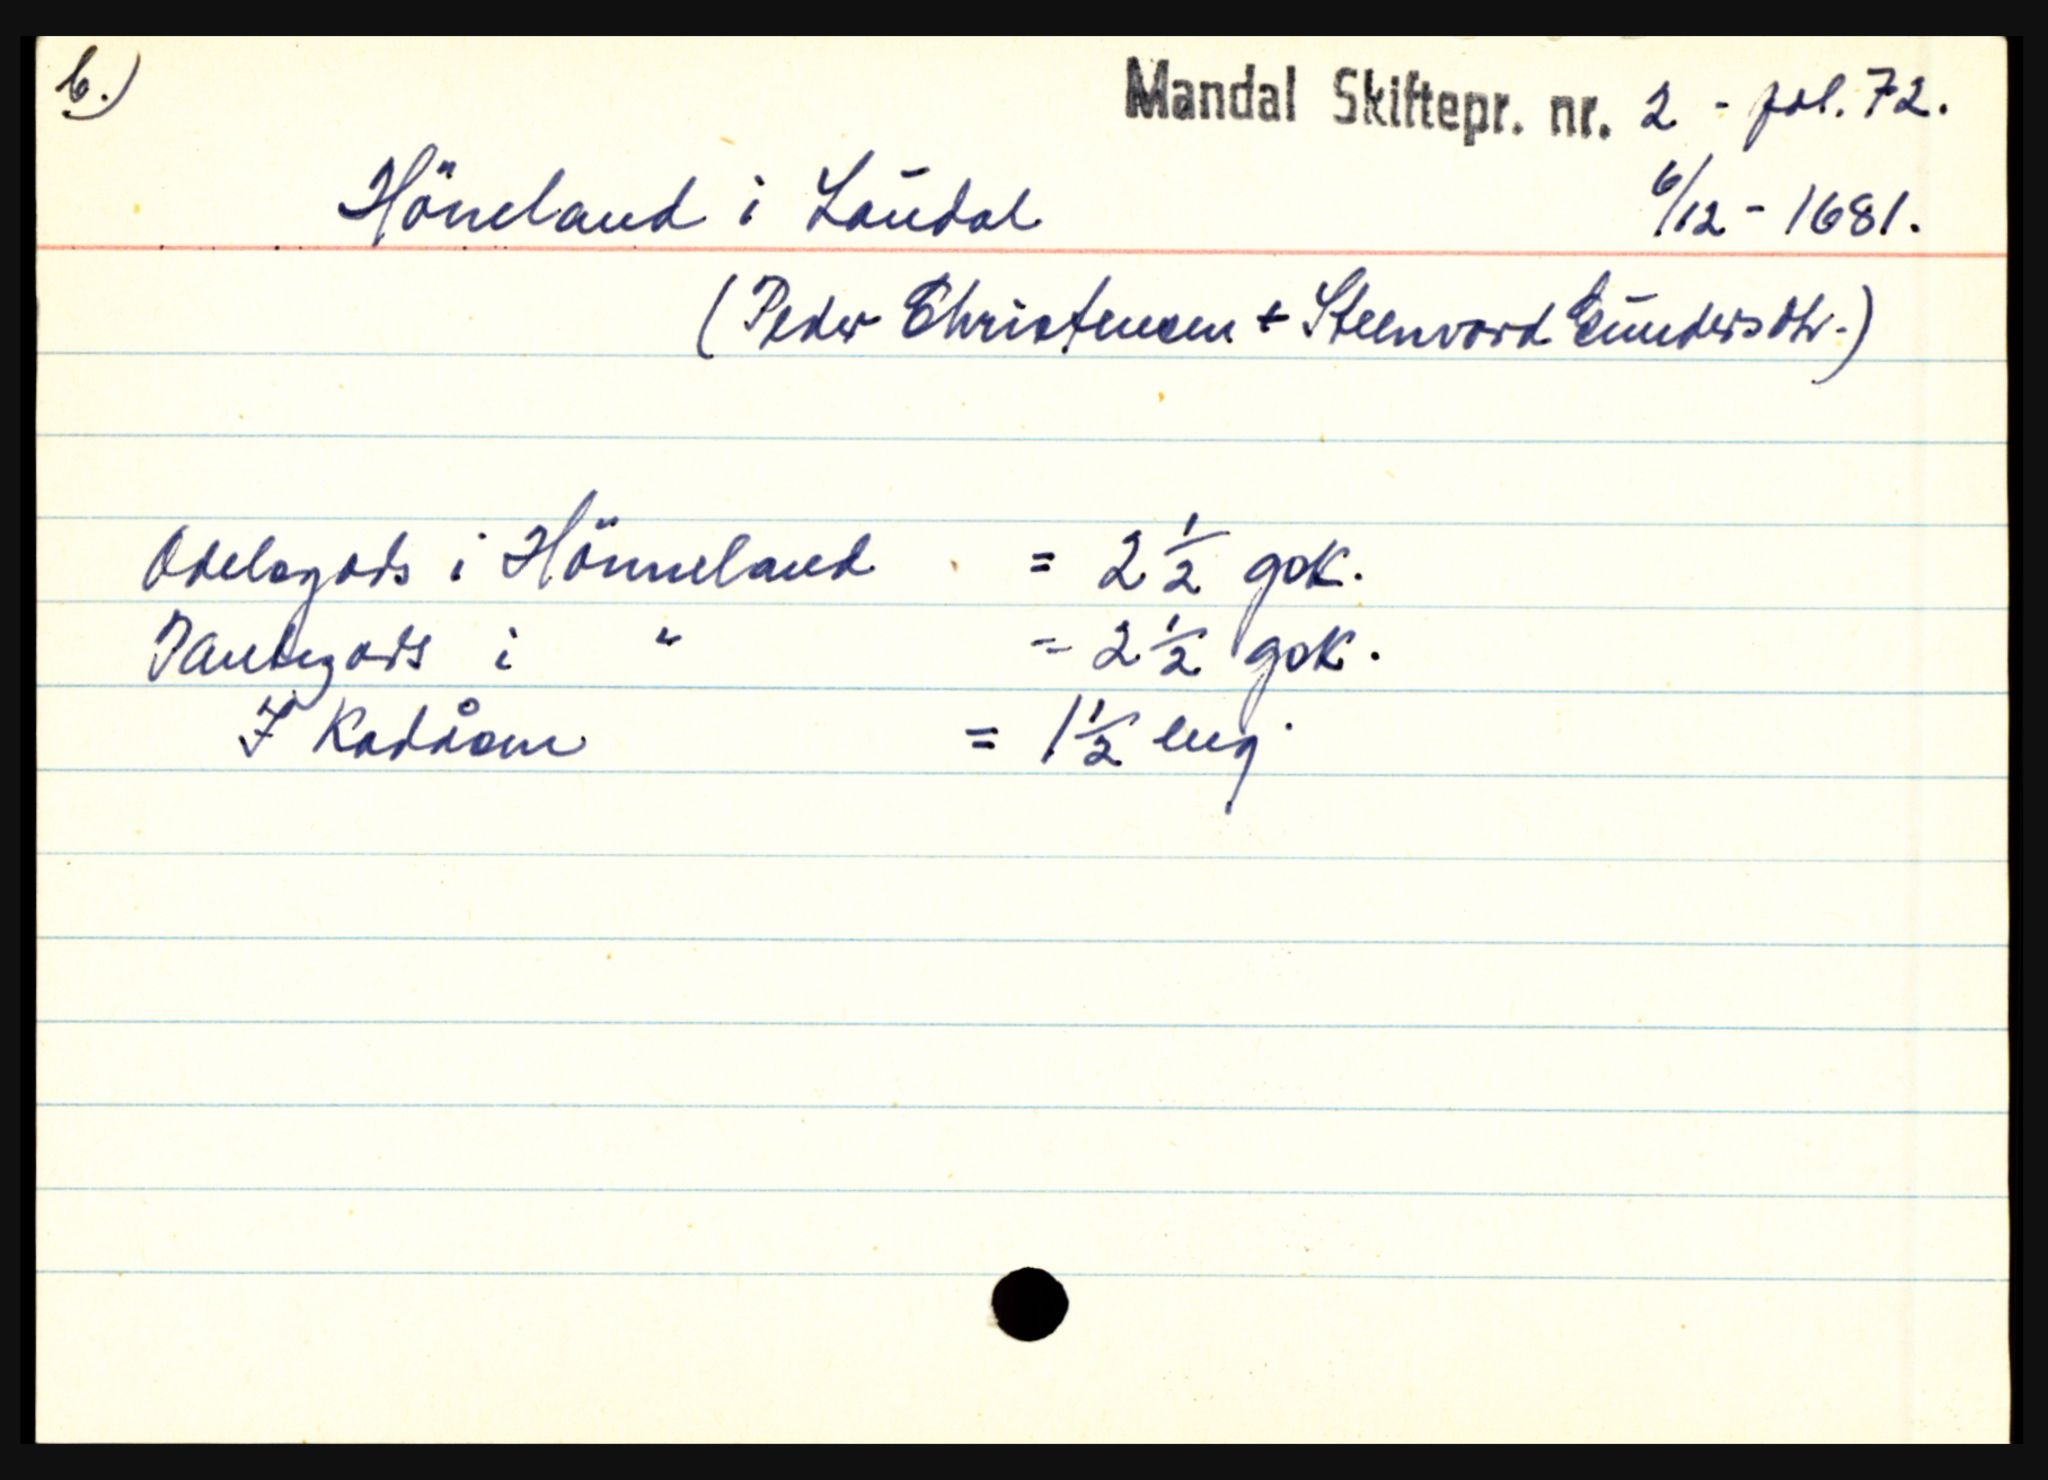 b.)
Mandal Skiftepr. nr. 2 - fol. 72.
Höneland i Laudal 6/12 - 1681.
(Peder Christensen + Steenvord Gundersdtr.)
Odelsgods i Hönneland = 2 1/2 gsk.
Pantegods i " = 2 1/2 gsk.
I = 1 1/2 eng.